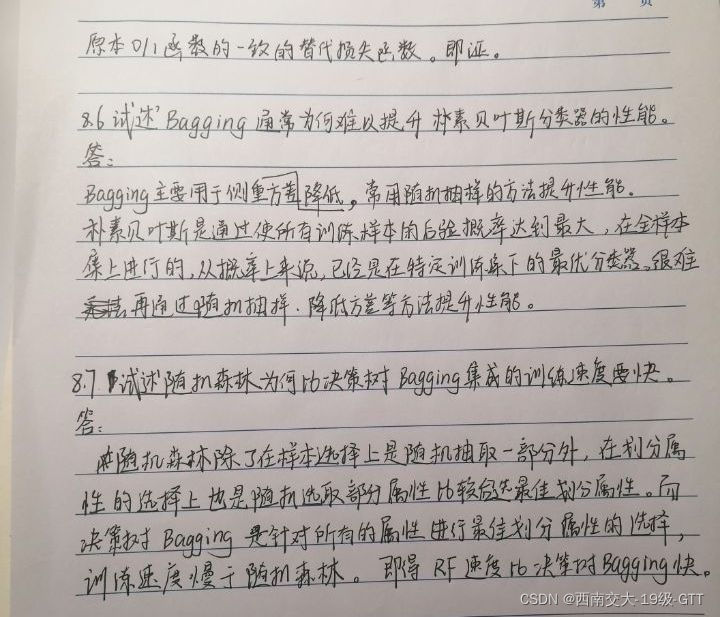 第 页
原本0/1函数的一致的替代损失函数。即证。
8.6 试述 Bagging 通常为何难以提升朴素贝叶斯分类器的性能。
答:
Bagging主要用于侧重方差降低,常用随机抽样的方法提升性能。
朴素贝叶斯是通过使所有训练样本的后验概率达到最大,在全样本
集上进行的,从概率上来说,已经是在特定训练集下的最优分类器。很难
再通过随机抽样、降低方差等方法提升性能。
8.7 试述随机森林为何比决策树Bagging集成的训练速度要快。
答:
随机森林除了在样本选择上是随机抽取一部分外,在划分属
性的选择上也是随机选取部分属性比较后选最佳划分属性。而
决策树 Bagging 是针对所有的属性进行最佳划分属性的选择,
训练速度慢于随机森林。即得 RF 速度比决策树Bagging快。
CSDN @西南交大-19级-GTT